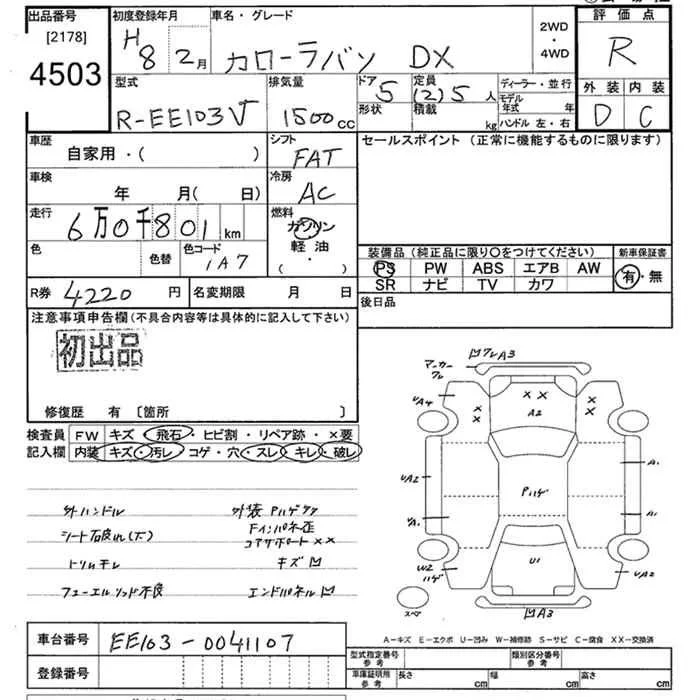 出品番号
[2178]
4503
初度登録年月
H 8 2月
車名・グレード
カローラバン DX
2WD
・
4WD
評価点
R
外装 内装
D C
型式
R-EE103V
排気量
1500cc
ドア
5
形状
定員
(2)5人
積載
kg
ディーラー・並行
モデル年式 年
ハンドル 左・右
車歴
自家用・( )
シフト
FAT
セールスポイント (正常に機能するものに限ります)
車検
年 月( 日)
冷房
AC
走行
6万0千801km
燃料
ガソリン
軽油
( ・ )
色
色替
色コード
1A7
装備品(純正品に限り○をつけてください)
新車保証書
PS PW ABS エアB AW
SR ナビ TV カワ
有・無
R券 4220円
名変期限 月 日
後日品
注意事項申告欄(不具合内容等は具体的に記入して下さい)
初出品
修復歴 有 〔箇所 〕
検査員記入欄
FW キズ 飛石・ヒビ割・リペア跡・×要
内装 キズ・汚レ・コゲ・穴・スレ・キレ・破レ
外ハンドル
外装 Pハゲ
シート破れ(大)
コアサポート××
トリムキレ
キズ凹
フューエルリッド不良
エンドパネル凹
マーカー
ワレ
凹ワレA3
UA4
××
A2
××
UA2
A1
Pハゲ
UA1
A1
W2
ハゲ
U1
UA2
スペア
凹A3
A-キズ E-エクボ U-凹み W-補修跡 S-サビ C-腐食 XX-交換済
車台番号
EE103-0041107
登録番号
型式指定番号
参考
類別区分番号
参考
車庫証明用
参考
長さ cm
幅 cm
高さ cm